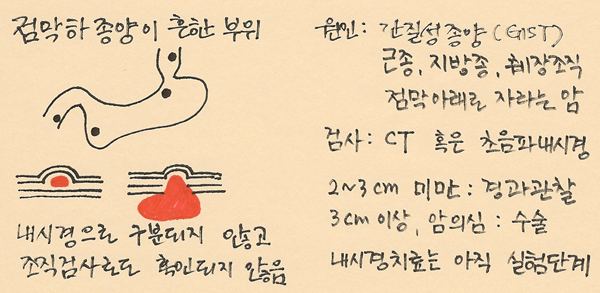 점막하 종양이 흔한 부위
내시경으로 구분되지 않고
조직검사로도 확인되지 않음
원인: 간질성종양(GIST)
근종, 지방종, 췌장조직
점막아래로 자라는 암
검사: CT 혹은 초음파내시경
2~3cm 미만: 경과관찰
3cm 이상, 암의심: 수술
내시경치료는 아직 실험단계